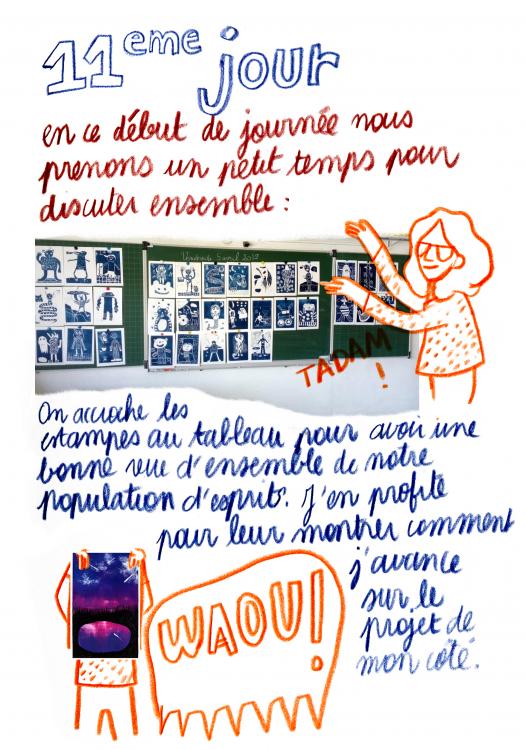 11eme jour
en ce début de journée nous
prenons un petit temps pour
discuter ensemble :
Vendredi 5 avril 2019
TADAM
!
On accroche les
estampes au tableau pour avoir une
bonne vue d'ensemble de notre
population d'esprits. J'en profite
pour leur montrer comment
j'avance
sur le
projet de
mon côté.
WAOU!